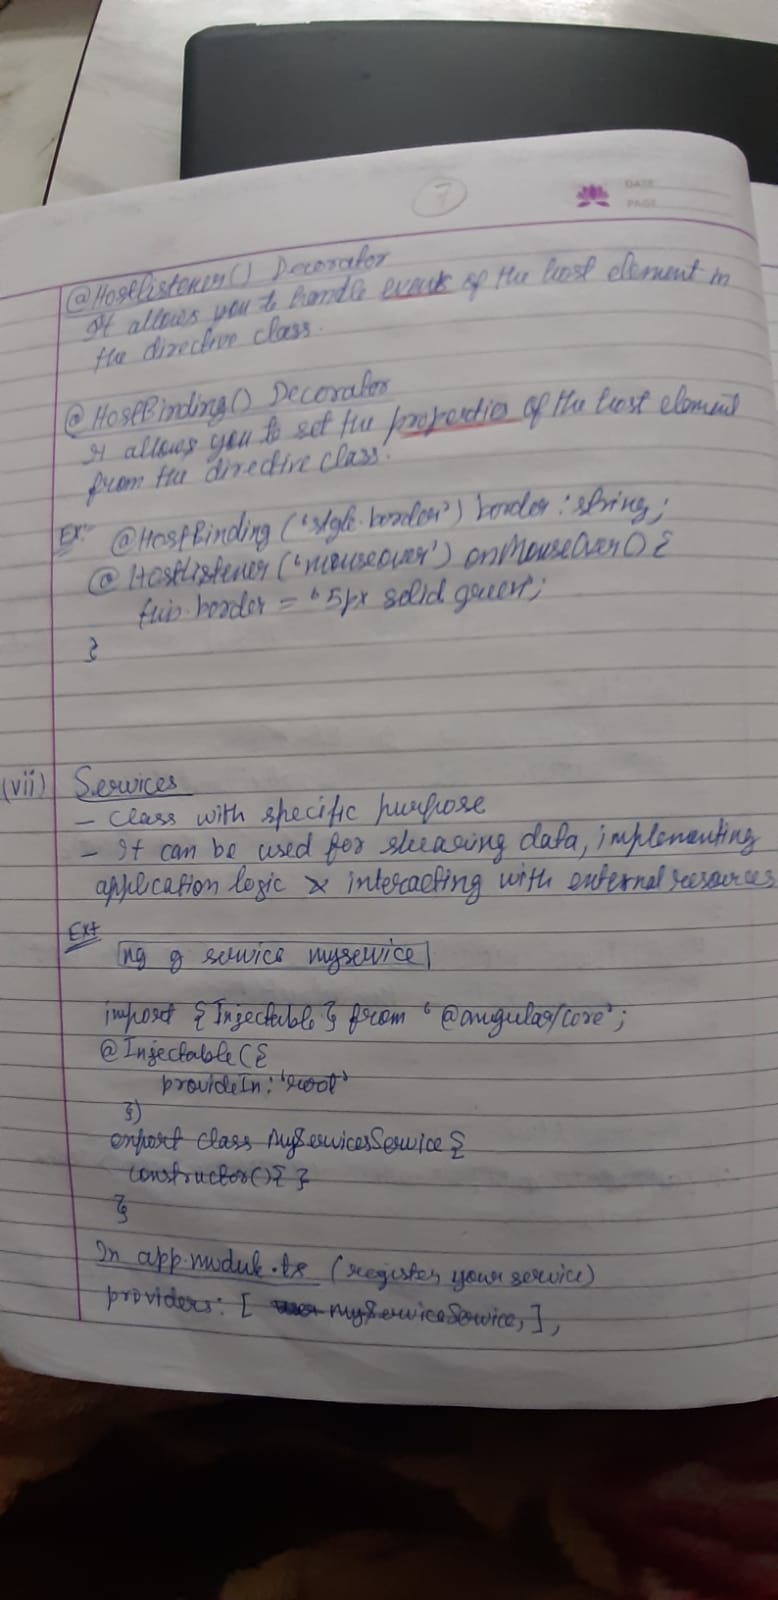 7
DATE
PAGE
@HostListener() Decorator
It allows you to handle events of the host element in
the directive class.
@HostBinding() Decorator
It allows you to set the properties of the host element
from the directive class.
Ex:- @HostBinding ('style.border') border : string;
@HostListener ('mouseover') onMouseOver() {
this.border = '5px solid green';
}
(vii) Services
- class with specific purpose
- It can be used for shearing data, implementing
application logic & interacting with external resources
Ex:
ng g service myservice
import { Injectable } from '@angular/core';
@Injectable({
provideIn: 'root'
})
export class MyServicesService {
constructor() { }
}
In app.module.ts (register your service)
providers: [ myServiceService, ],